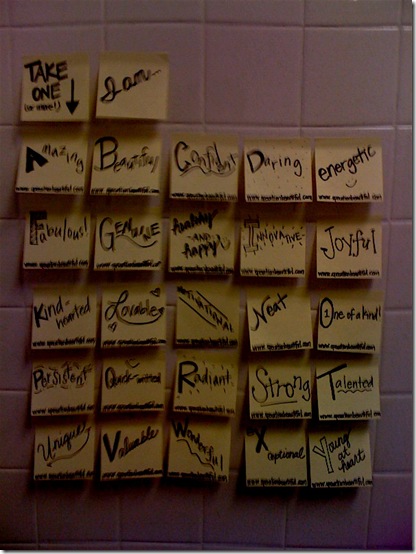 TAKE
ONE
(or more!)
I am...
Amazing
www.operationbeautiful.com
Beautiful
www.operationbeautiful.com
Confident
www.operationbeautiful.com
Daring
www.operationbeautiful.com
energetic
www.operationbeautiful.com
Fabulous!
www.operationbeautiful.com
GENUINE
www.operationbeautiful.com
healthy
AND
happy
www.operationbeautiful.com
INNOVATIVE
www.operationbeautiful.com
Joyful
www.operationbeautiful.com
Kind-
hearted
www.operationbeautiful.com
Lovable
www.operationbeautiful.com
MOTIVATIONAL
www.operationbeautiful.com
Neat
www.operationbeautiful.com
One of a kind!
www.operationbeautiful.com
Persistent
www.operationbeautiful.com
Quick-witted
www.operationbeautiful.com
Radiant
www.operationbeautiful.com
Strong
www.operationbeautiful.com
Talented
www.operationbeautiful.com
Unique
www.operationbeautiful.com
Valuable
www.operationbeautiful.com
Wonderful
www.operationbeautiful.com
Xceptional
www.operationbeautiful.com
Young
at
heart
www.operationbeautiful.com